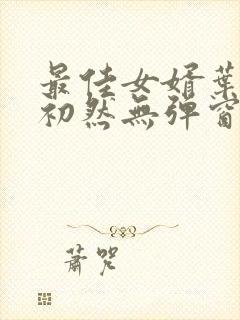 最佳女婿葉
初然無彈窗
蕭咒